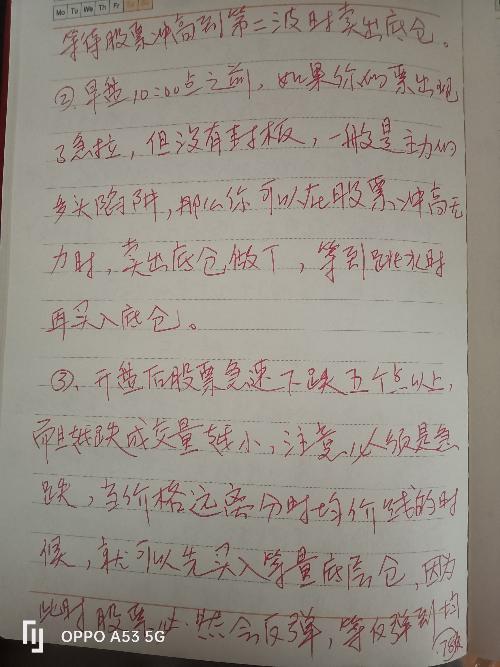 Mo Tu We Th Fr Sa Su
等待股票冲高到第二波时卖出底仓。
②早盘10:00点之前，如果你的票出现
了急拉，但没有封板，一般是主力的
多头陷阱，那么你可以在股票冲高无
力时，卖出底仓做T，等到跳水时
再买入底仓。
③、开盘后股票急速下跌五个点以上，
而且越跌成交量越小，注意必须是急
跌，当价格远离分时均价线的时
候，就可以先买入等量底仓，因为
此时股票必然会反弹，等反弹到均
OPPO A53 5G